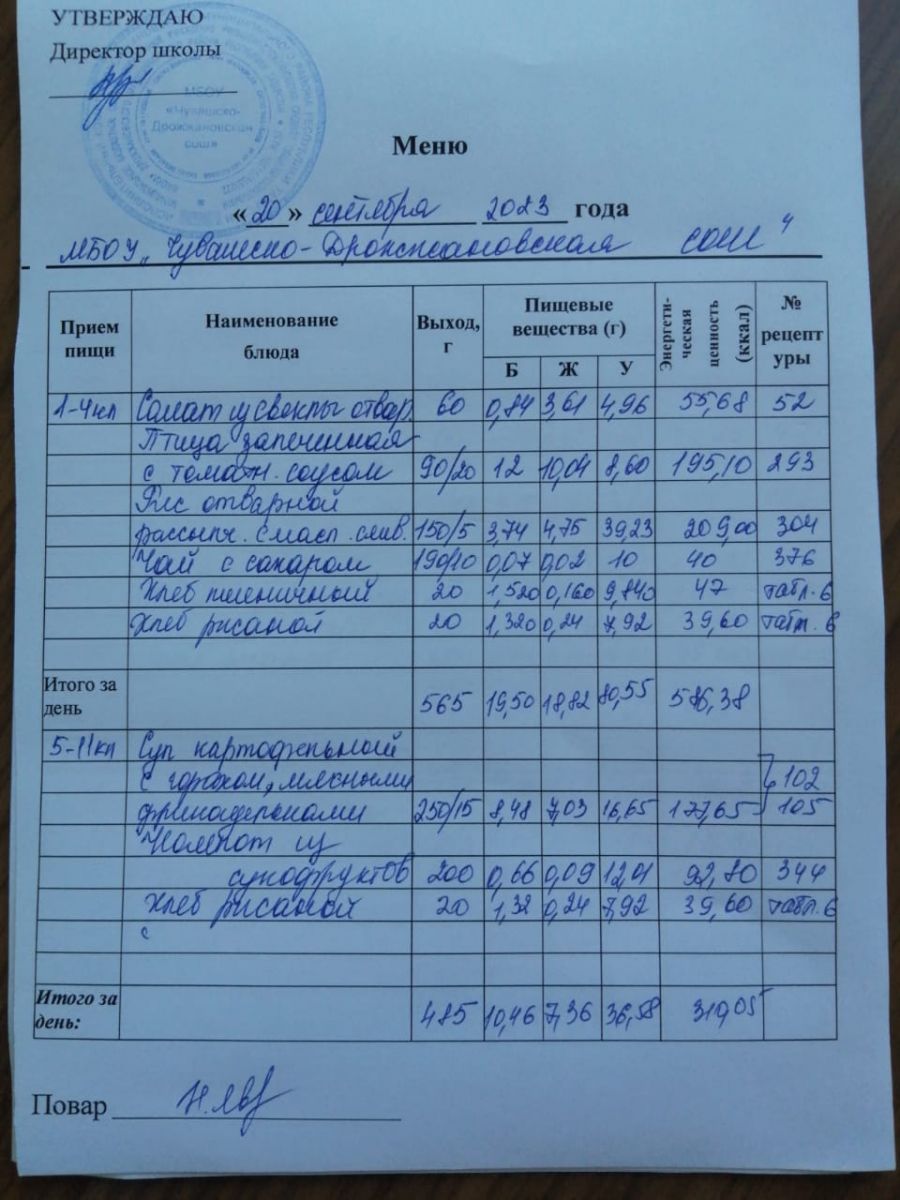 УТВЕРЖДАЮ
Директор школы
МБОУ
«Чувашско-
Дрожжановская
сош»
Меню
«20» сентября 2023 года
МБОУ „Чувашско-Дрожжановская СОШ“
Прием пищи Наименование блюда Выход, г Пищевые вещества (г) Б Ж У Энергети-ческая ценность (ккал) № рецептуры
1-4кл Салат из свеклы отвар. 60 0,84 3,61 4,96 55,68 52
Птица запеченная
с томатн. соусом 90/20 12 10,04 8,60 195,10 293
Рис отварной
рассыпч. с масл. слив. 150/5 3,74 4,75 39,23 209,00 304
Чай с сахаром 190/10 0,07 0,02 10 40 376
Хлеб пшеничный 20 1,520 0,160 9,840 47 табл. 6
Хлеб ржаной 20 1,320 0,24 7,92 39,60 табл. 6
Итого за день 565 19,50 18,82 80,55 586,38
5-11кл Суп картофельный
с горохом, мясными 102
фрикадельками 250/15 8,48 7,03 16,65 177,65 105
Компот из
сухофруктов 200 0,66 0,09 12,01 92,80 344
Хлеб ржаной 20 1,32 0,24 7,92 39,60 табл. 6
с
Итого за день: 485 10,46 7,36 36,58 310,05
Повар